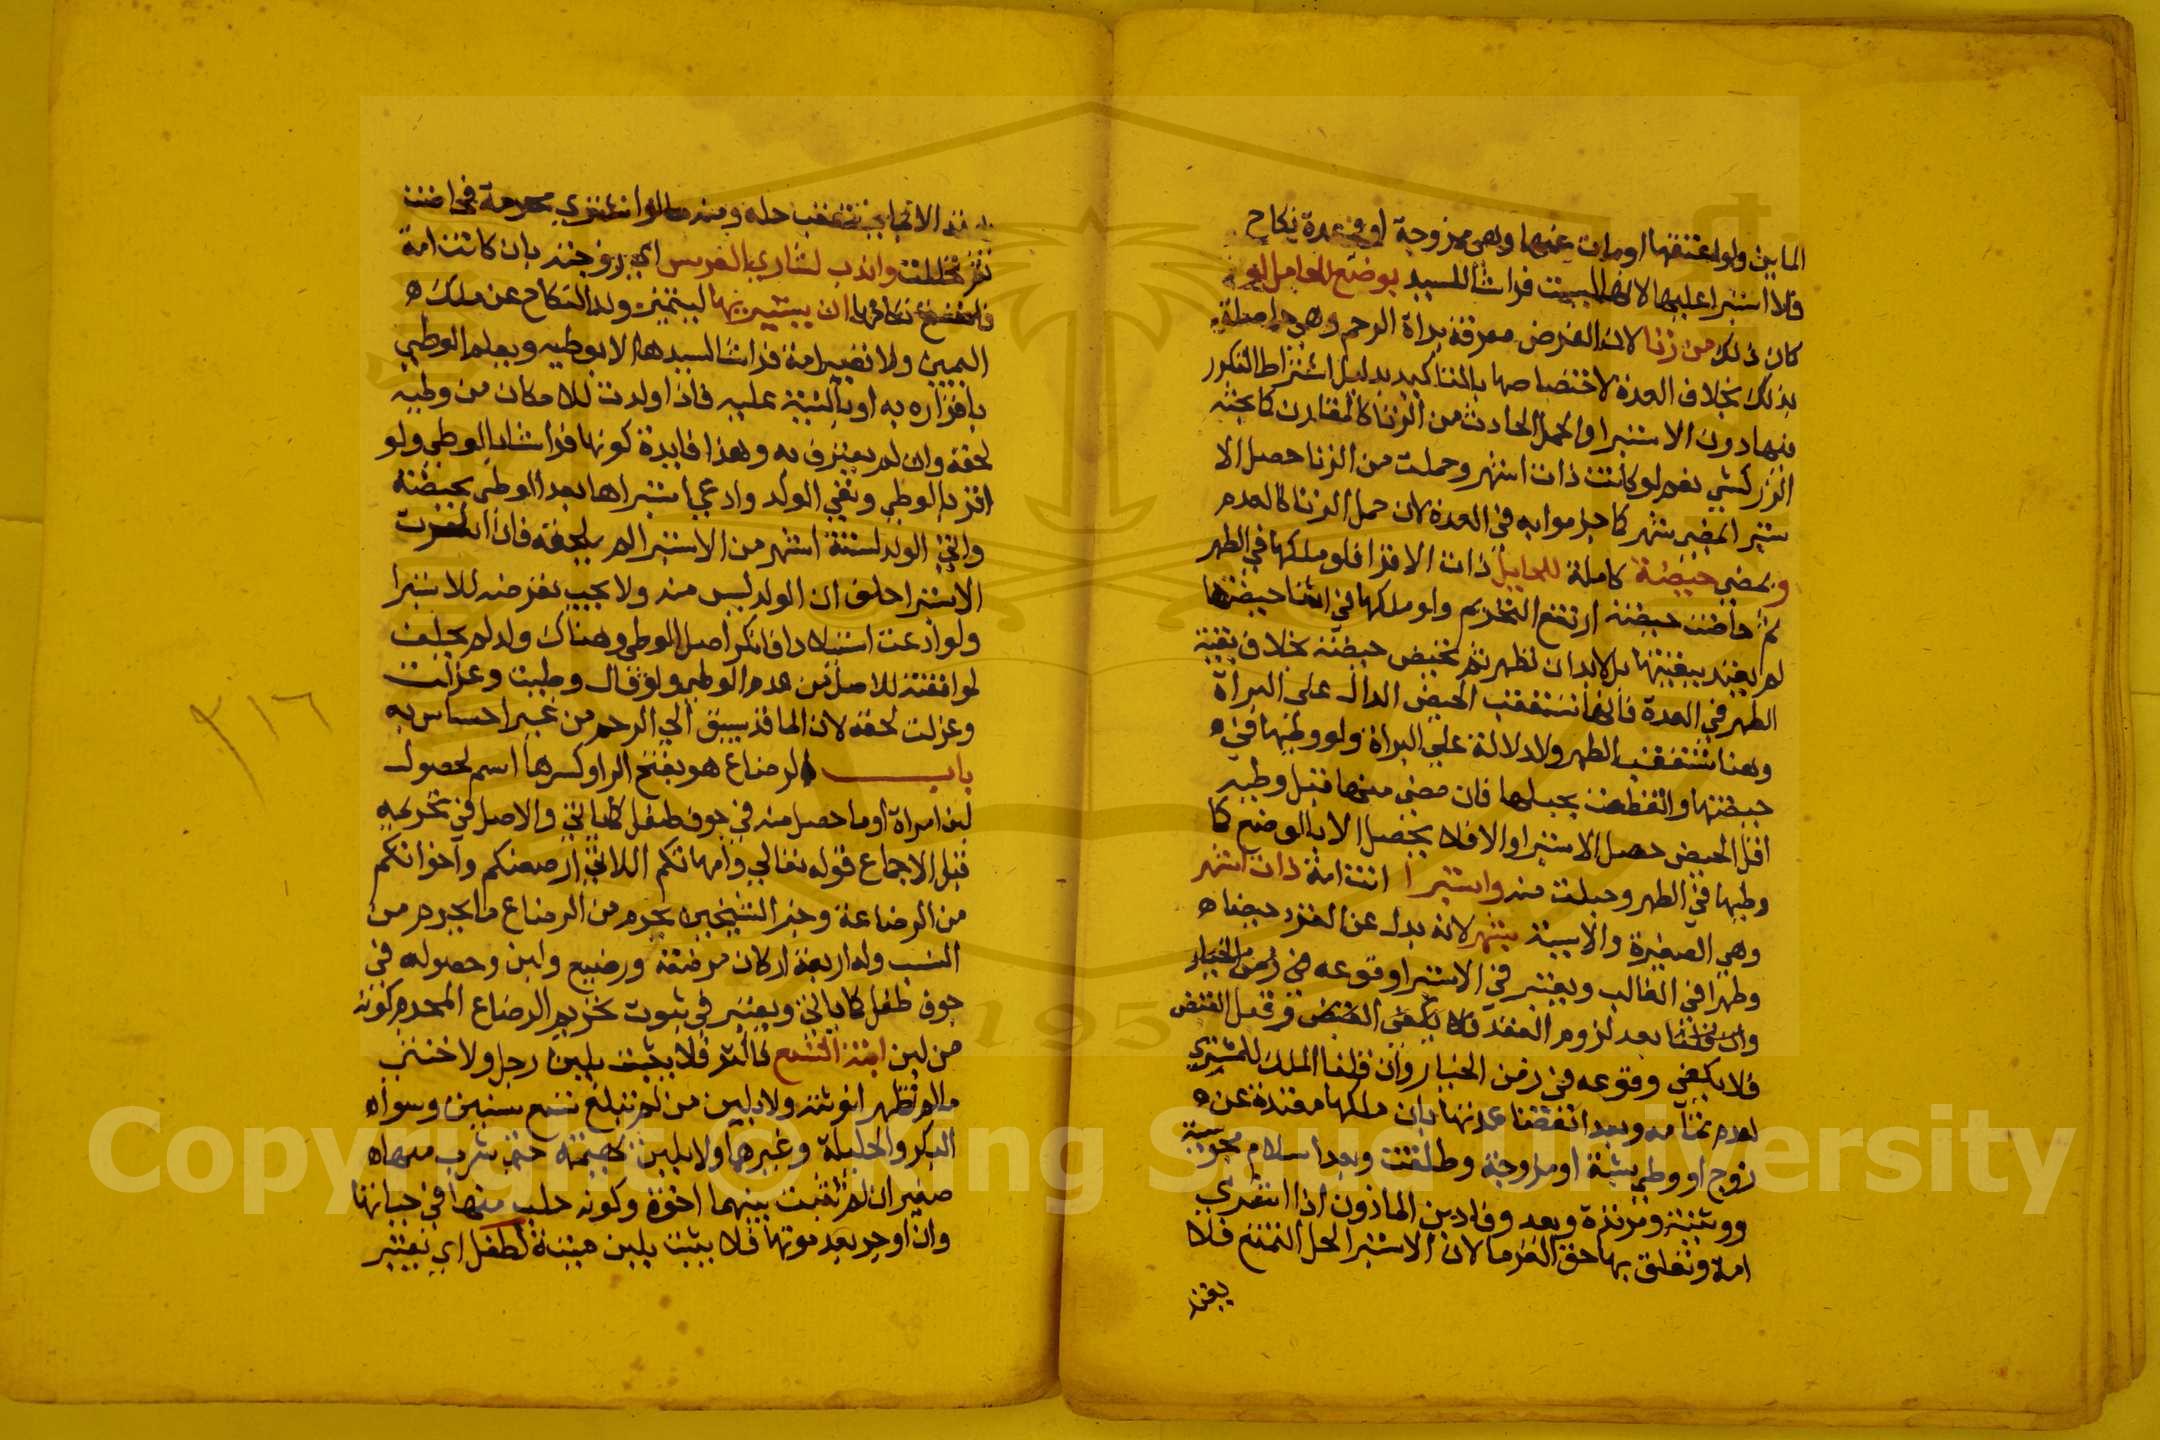 المابين ولو اعتقها او مات عنها وهي مزوجة او في عدة نكاح
فلا استبرا عليها لانها ليست فراشا للسيد بوضع الحامل لو
كان ذلك من زنا لان الغرض معرفة براة الرحم وهي حاصلة
بذلك بخلاف العدة لاختصاصها بالتاكيد بدليل اشتراط التكرر
فيها دون الاستبرا والحمل الحادث من الزنا كالمقارن كما بحثه
الزركشي نعم لو كانت ذات اشهر وحملت من الزنا حصل الا
ستبرا بمضي شهر كما جزموا به في العدة لان حمل الزنا كالعدم
وبمضي حيضة كاملة للحايل ذات الاقرا فلو ملكها في الطهر
ثم حاضت حيضة ارتفع التحريم ولو ملكها في اثنا حيضتها
لم يعتد ببقيتها بل لابد ان تطهر ثم تحيض حيضة بخلاف بقية
الطهر في العدة فانها تستعقب الحيض الدال على البراة
وهنا تستعقب الطهر ولا دلالة على البراة ولو وطيها في
حيضتها وانقطعت بحبلها فان مضى منها قبل وطيه
اقل الحيض حصل الاستبرا والا فلا يحصل الا بالوضع كما
وطيها في الطهر وحبلت منه واستبرا انت امة ذات اشهر
وهي الصغيرة والايسة بشهر لانه بدل عن القرء حيضا
وطهرا في الغالب ويعتبر في الاستبرا وقوعه في زمن الخيار
وان قلنا بعد لزوم العقد فلا يكفي القبض قبل القبض
فلا يكفي وقوعه في زمن الخيار وان قلنا الملك للمشتري
لعدم تمامه وبعد انقضا عدتها بان ملكها معتدة عن
زوج او وطي شبهة او مزوجة وطلقت وبعد اسلام مجوسية
ووثنية ومرتدة وبعد وفا دين الماذون اذا اشترى
امة وتعلق بها حق الغرما لان الاستبرا لحل التمتع فلا
يعتد
الا فيما يستعقب حله ومنه ما لو اشترى محرمة فحاضت
ثم تحللت وانذب لشاري العرس اي زوجته بان كانت امة
فانفسخ نكاحها ان يستبريها ليتميز ولد النكاح عن ملك
اليمين ولا تصير امة فراشا لسيدها الا بوطيه ويعلم الوطي
باقراره به او بالبينة عليه فاذا ولدت للامكان من وطيه
لحقه وان لم يعترف به وهذا فايدة كونها فراشا بالوطي ولو
اقر بالوطي ونفي الولد وادعي استبراها بعد الوطي بحيضة
واتي الولد لستة اشهر من الاستبرا لم يلحقه فان انكرت
الاستبرا حلف ان الولد ليس منه ولا يجب تعرضه للاستبرا
ولو ادعت استيلادا فانكر اصل الوطي وهناك ولد لم يحلف
لموافقته للاصل من عدم الوطي ولو قال وطيت وعزلت
وعزلت لحقه لان الما قد يسبق الي الرحم من غير احساس به
باب الرضاع هو بفتح الرا وكسرها اسم لحصول
لبن امراة او ما حصل منه في جوف طفل كما ياتي والاصل في تحريمه
قبل الاجماع قوله تعالي وامهاتكم اللاتي ارضعنكم واخواتكم
من الرضاعة وخبر الشيخين يحرم من الرضاع ما يحرم من
النسب وله اربعة اركان مرضعة ورضيع ولبن وحصوله في
جوف طفل كما ياتي ويعتبر في ثبوت تحريم الرضاع المحرم كونه
من لبن ابنة التسع فاكثر فلا يثبت بلبن رجل ولا خنثى
مالم تظهر انوثته ولا بلبن من لم تبلغ تسع سنين وسواه
البكر والخلية وغيرهما ولا بلبن بهيمة حتى شرب منها
صغيران لم تثبت بينهما اخوة وكونه حلب منها في حياتها
وان اوجر بعد موتها فلا يثبت بلبن ميتة لطفل اي يعتبر
٢١٦
Copyright © King Saud University
1957